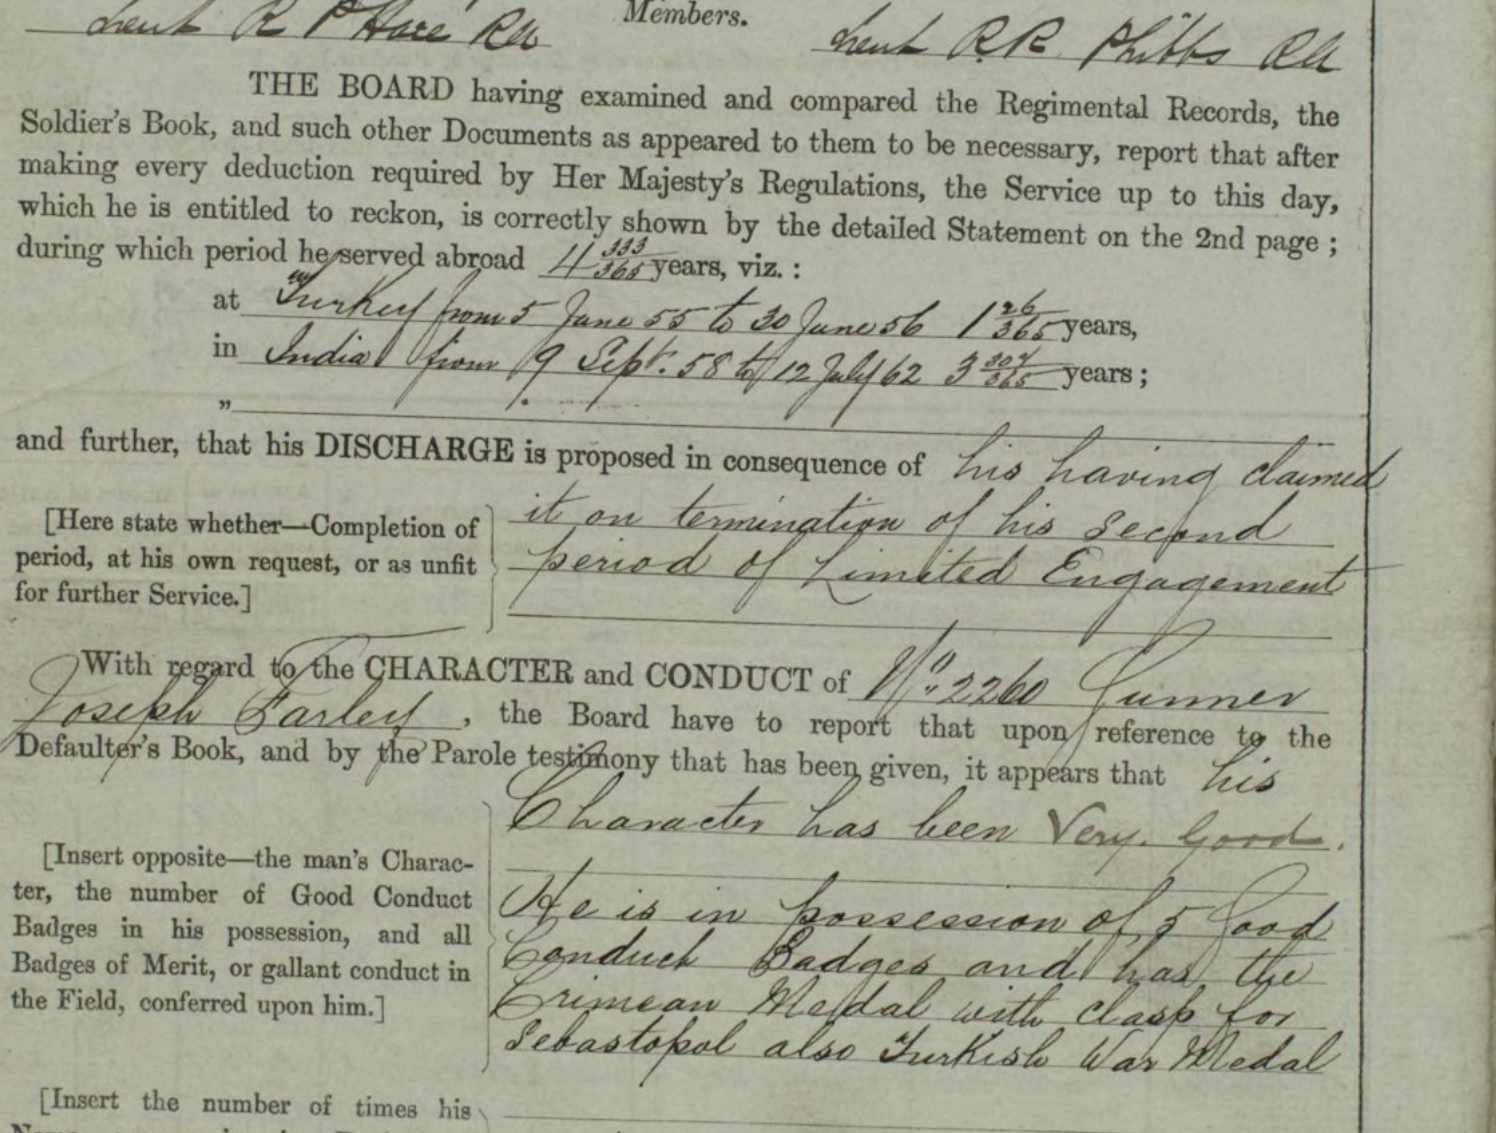 Members.
Lieut R P Hare RA Lieut R.R. Phibbs RA
THE BOARD having examined and compared the Regimental Records, the
Soldier's Book, and such other Documents as appeared to them to be necessary, report that after
making every deduction required by Her Majesty's Regulations, the Service up to this day,
which he is entitled to reckon, is correctly shown by the detailed Statement on the 2nd page ;
during which period he served abroad 4 333/365 years, viz. :
at Turkey from 5 June 55 to 30 June 56 1 26/365 years,
in India from 9 Sept. 58 to 12 July 62 3 307/365 years ;
"
and further, that his DISCHARGE is proposed in consequence of his having claimed
[Here state whether—Completion of
period, at his own request, or as unfit
for further Service.]
it on termination of his Second
period of Limited Engagement
With regard to the CHARACTER and CONDUCT of No. 2260 Gunner
Joseph Farley, the Board have to report that upon reference to the
Defaulter's Book, and by the Parole testimony that has been given, it appears that his
Character has been Very. Good.
[Insert opposite—the man's Charac-
ter, the number of Good Conduct
Badges in his possession, and all
Badges of Merit, or gallant conduct in
the Field, conferred upon him.]
He is in possession of 5 Good
Conduct Badges and has the
Crimean Medal with clasp for
Sebastopol also Turkish War Medal
[Insert the number of times his